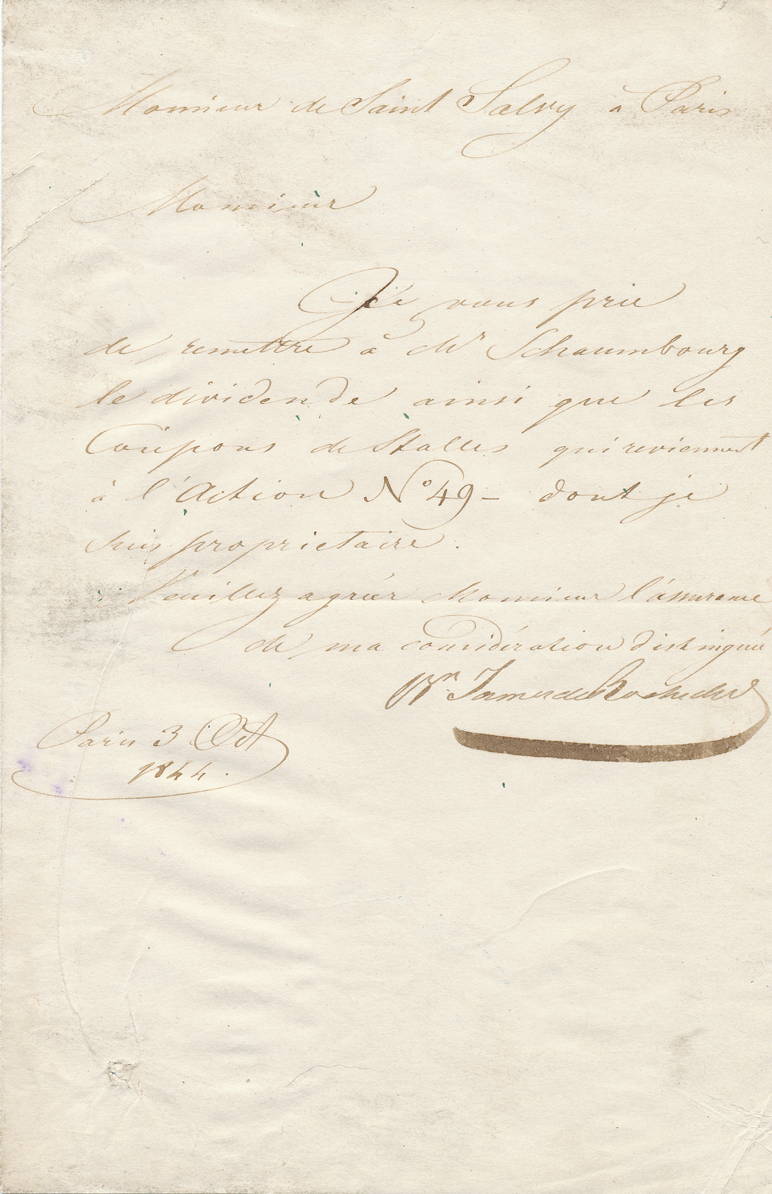 Monsieur de Saint Salvy à Paris
Monsieur
Je vous prie
de remettre à Mr Schaumbourg
le dividende ainsi que les
Coupons de Stalles qui reviennent
à l'Action No 49 - dont je
suis proprietaire.
Veuillez agréer Monsieur l'assurance
de ma considération distinguée
Bn James de Rothschild
Paris 3 Oct
1844.